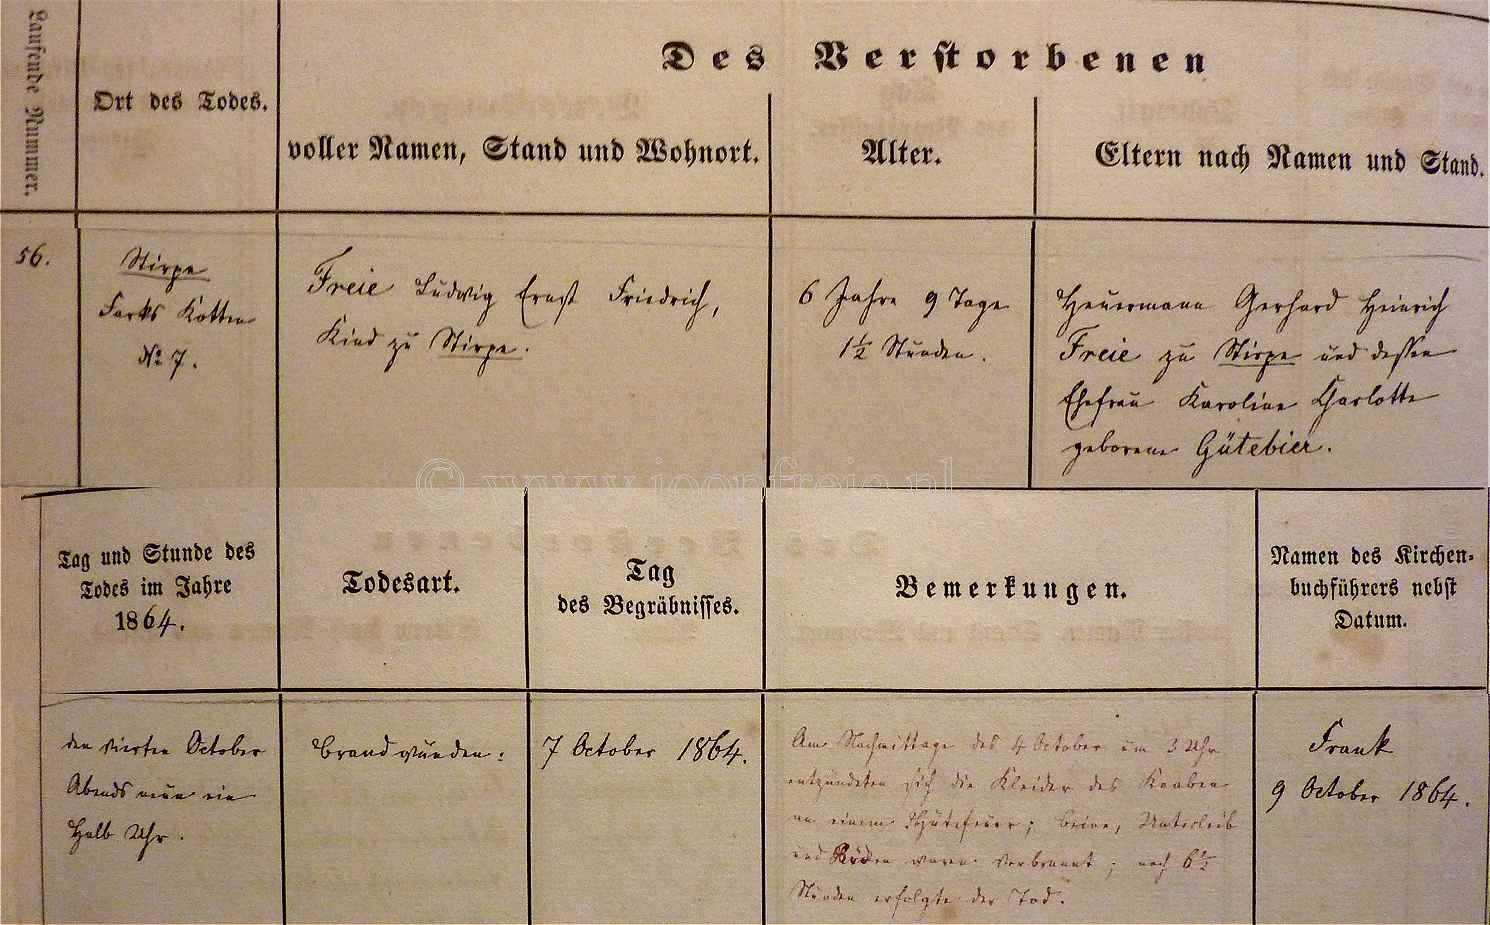 Laufende Nummer.
Ort des Todes.
Des Verstorbenen
voller Namen, Stand und Wohnort.
Alter.
Eltern nach Namen und Stand.
56.
Stirpe
Farks Kotten
№ 7.
Freie Ludwig Ernst Friedrich,
Kind zu Stirpe.
6 Jahre 9 Tage
1½ Stunden.
Heuermann Gerhard Heinrich
Freie zu Stirpe und dessen
Ehefrau Karoline Charlotte
geborene Gütebier.
© www.joopfreie.nl
Tag und Stunde des
Todes im Jahre
1864.
Todesart.
Tag
des Begräbnisses.
Bemerkungen.
Namen des Kirchen-
buchführers nebst
Datum.
den vierten October
Abends neun ein
Halb Uhr.
Brandwunden:
7 October 1864.
Am Nachmittage des 4 October um 3 Uhr
entzündeten sich die Kleider des Knaben
an einem Hütefeuer; Beine, Unterleib
und Rücken waren verbrannt; nach 6½
Stunden erfolgte der Tod.
Frank
9 October 1864.